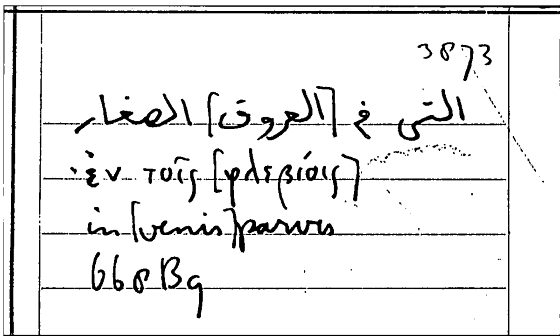 3873
التى فى [العروق] الصغار
ἐν τοῖς [φλεβίοις]
in [venis] parvis
668B9